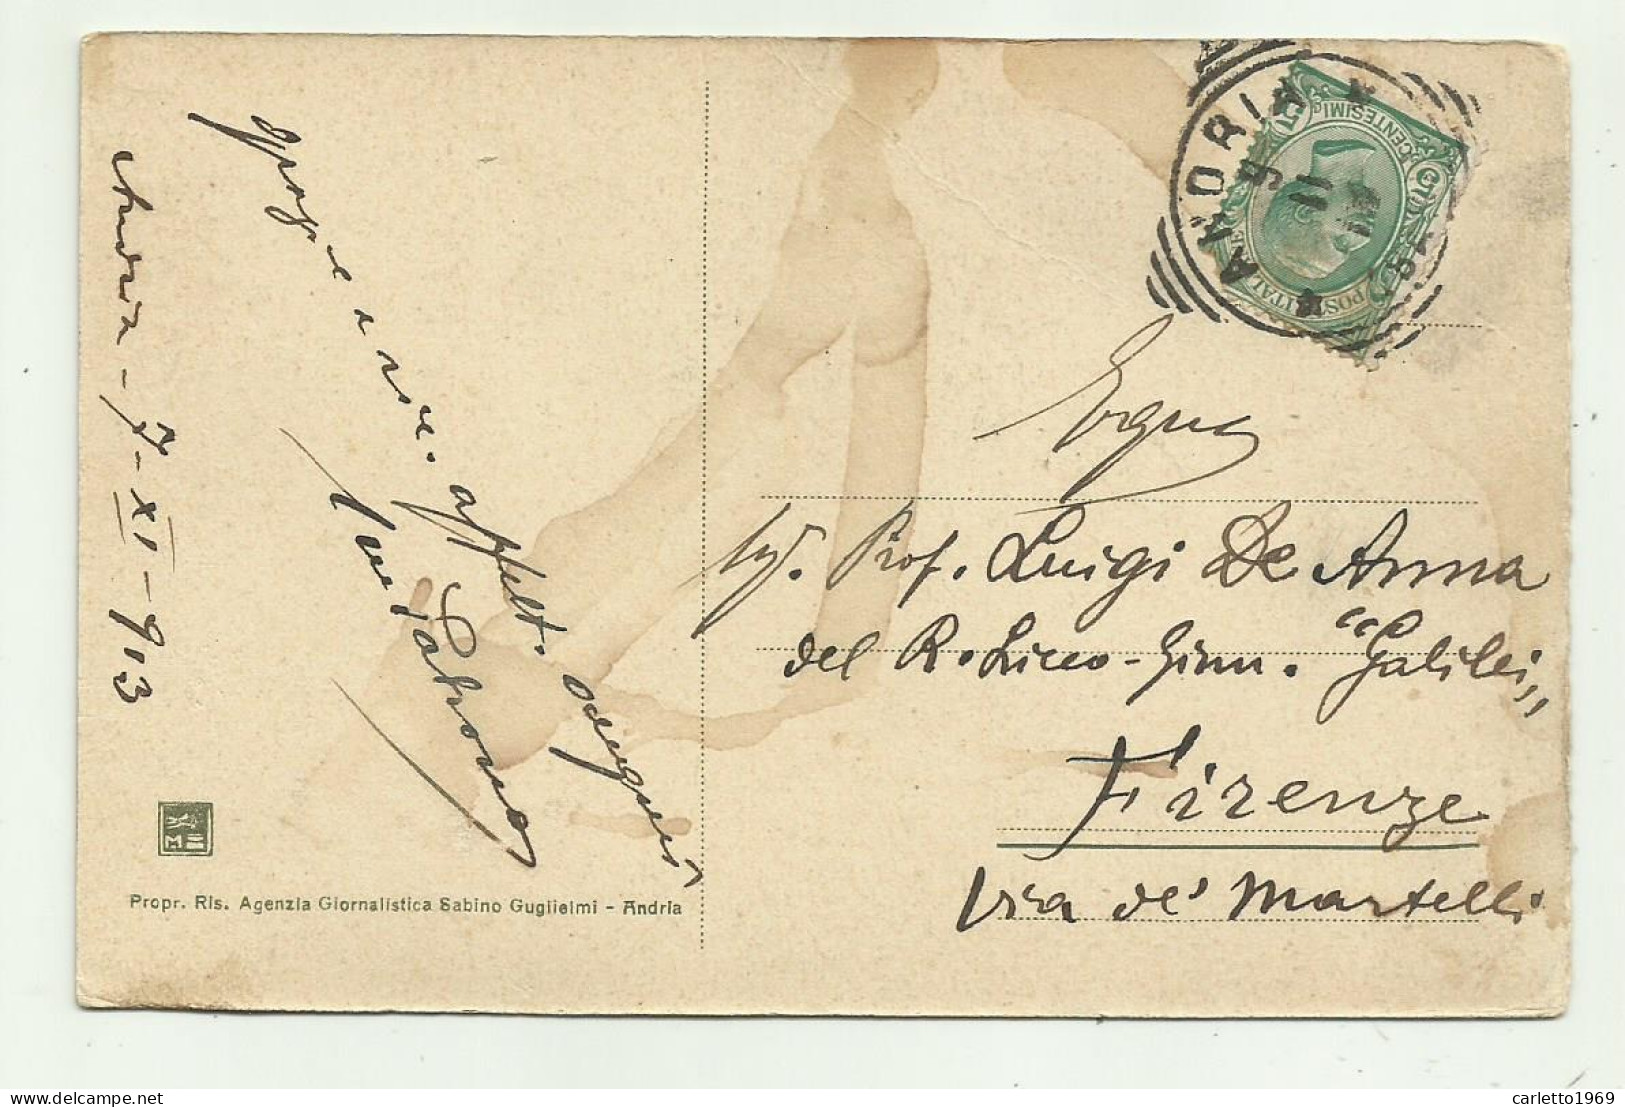 Andria - 7 - XI - 913
Grazie e vive. affett. auguri
Propr. Ris. Agenzia Giornalistica Sabino Guglielmi - Andria
ANDRIA
11
5 CENTESIMI 5
POSTE ITALIANE
Egreg
Sig. Prof. Luigi De Anna
del R. Liceo - Ginn. "Galilei"
Firenze
Via de' Martelli
carletto1969